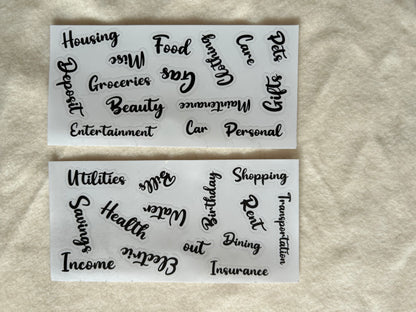 Housing
Misc
Food
Clothing
Care
Pets
Deposit
Groceries
Gas
Gifts
Beauty
Maintenance
Entertainment
Car
Personal
Utilities
Bills
Birthday
Shopping
Savings
Health
Water
Rent
Transportation
Income
Electric
out
Dining
Insurance